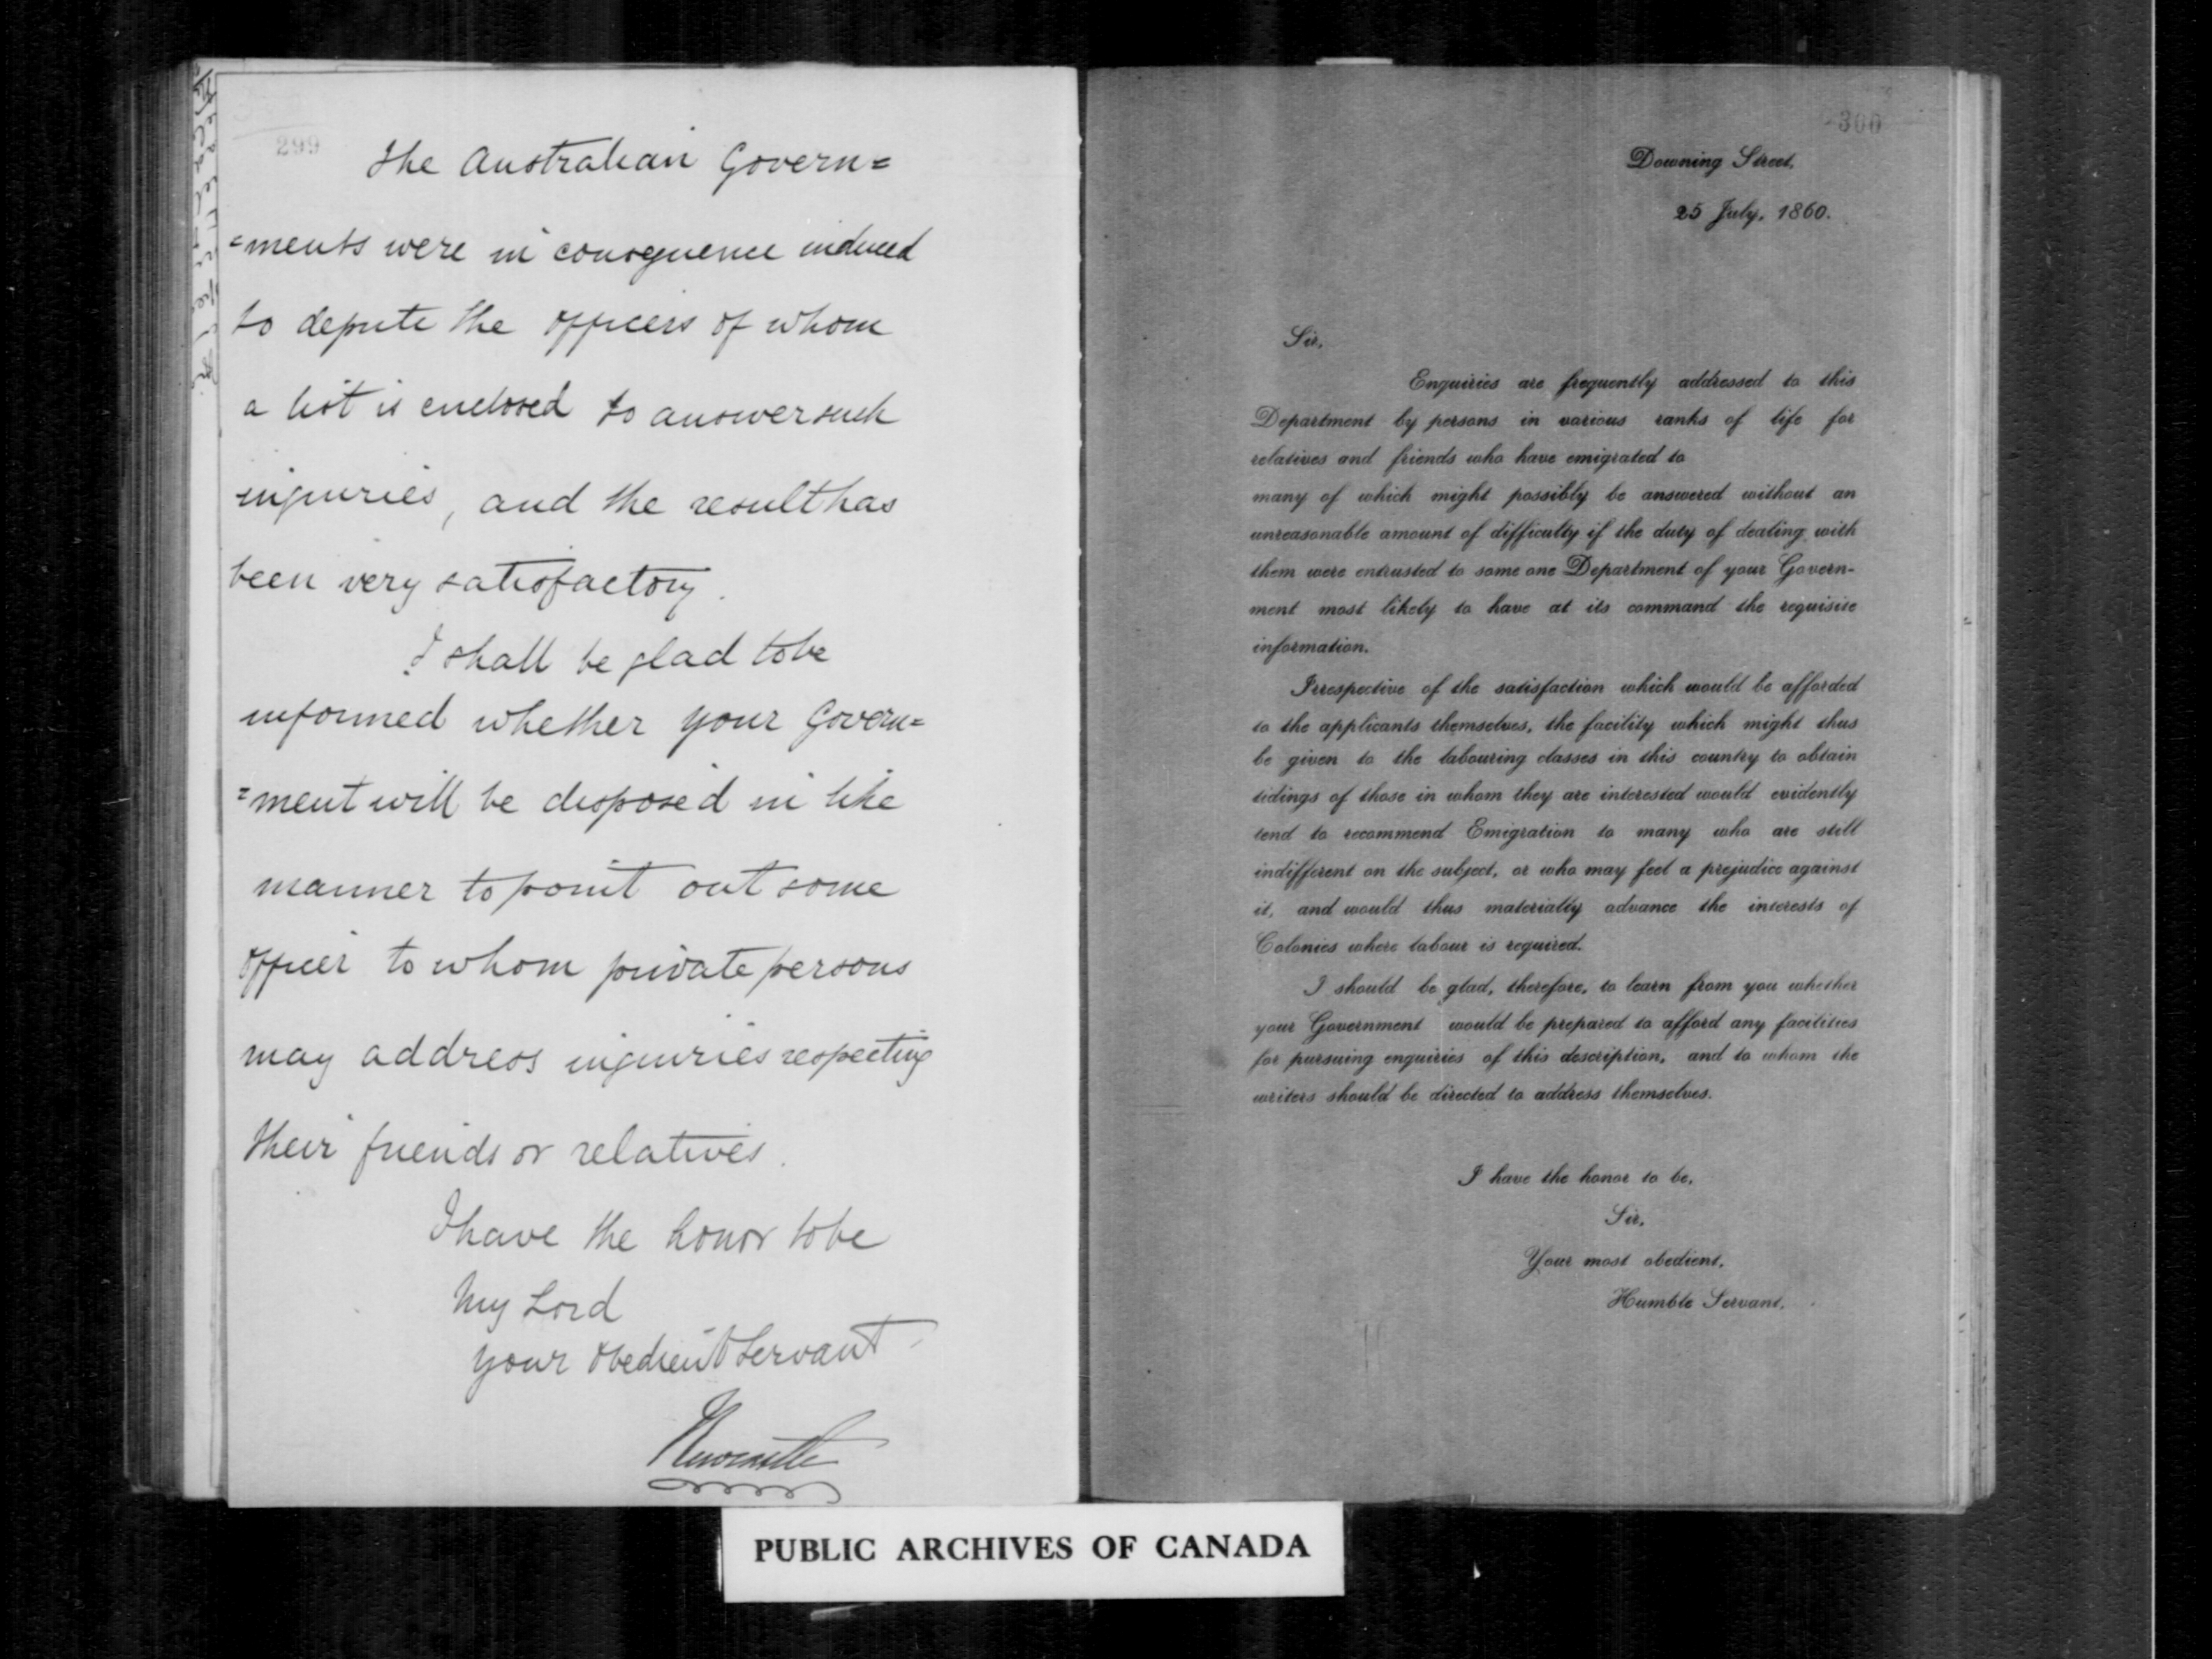 299
The Australian Govern=
=ments were in consequence induced
to depute the officers of whom
a list is enclosed to answer such
inquiries, and the result has
been very satisfactory.
I shall be glad to be
informed whether your Govern=
=ment will be disposed in like
manner to point out some
officer to whom private persons
may address inquiries respecting
their friends or relatives.
I have the honor to be
My Lord
your obedient servant
Newcastle
300
Downing Street,
25 July, 1860.
Sir,
Enquiries are frequently addressed to this
Department by persons in various ranks of life for
relatives and friends who have emigrated to
many of which might possibly be answered without an
unreasonable amount of difficulty if the duty of dealing with
them were entrusted to some one Department of your Govern-
ment most likely to have at its command the requisite
information.
Irrespective of the satisfaction which would be afforded
to the applicants themselves, the facility which might thus
be given to the labouring classes in this country to obtain
tidings of those in whom they are interested would evidently
tend to recommend Emigration to many who are still
indifferent on the subject, or who may feel a prejudice against
it, and would thus materially advance the interests of
Colonies where labour is required.
I should be glad, therefore, to learn from you whether
your Government would be prepared to afford any facilities
for pursuing enquiries of this description, and to whom the
writers should be directed to address themselves.
I have the honor to be,
Sir,
Your most obedient,
Humble Servant,
PUBLIC ARCHIVES OF CANADA